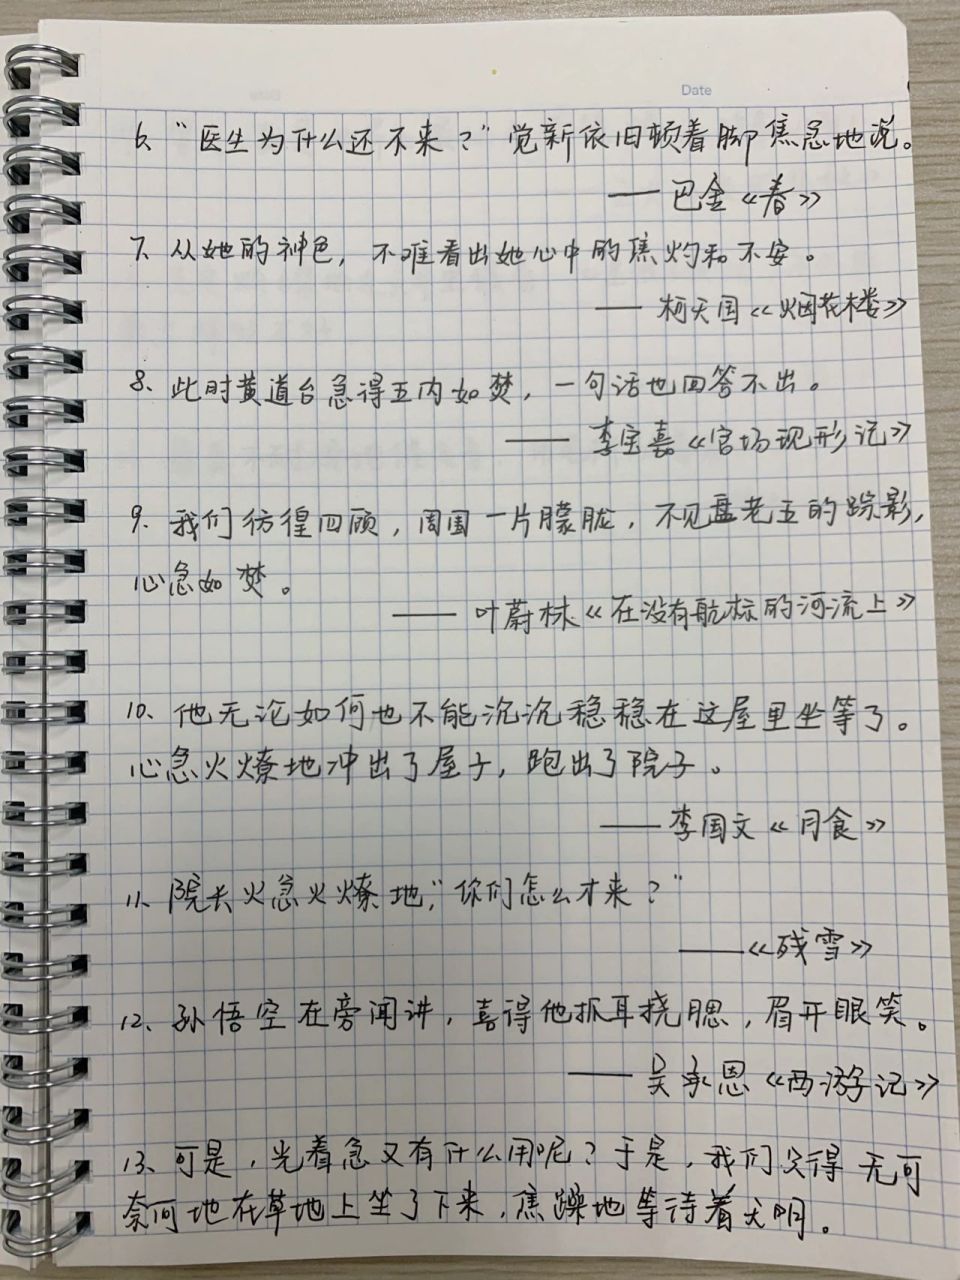 Date
6、“医生为什么还不来？”觉新依旧顿着脚焦急地说。
——巴金《春》
7、从她的神色，不难看出她心中的焦灼和不安。
——柯天国《烟花楼》
8、此时黄道台急得五内如焚，一句话也回答不出。
——李宝嘉《官场现形记》
9、我们彷徨四顾，周围一片朦胧，不见盘老五的踪影，
心急如焚。
——叶蔚林《在没有航标的河流上》
10、他无论如何也不能沉沉稳稳在这屋里坐等了。
心急火燎地冲出了屋子，跑出了院子。
——李国文《月食》
11、院长火急火燎地，“你们怎么才来？”
——《残雪》
12、孙悟空在旁闻讲，喜得他抓耳挠腮，眉开眼笑。
——吴承恩《西游记》
13、可是，光着急又有什么用呢？于是，我们只得无可
奈何地在草地上坐了下来，焦躁地等待着天明。